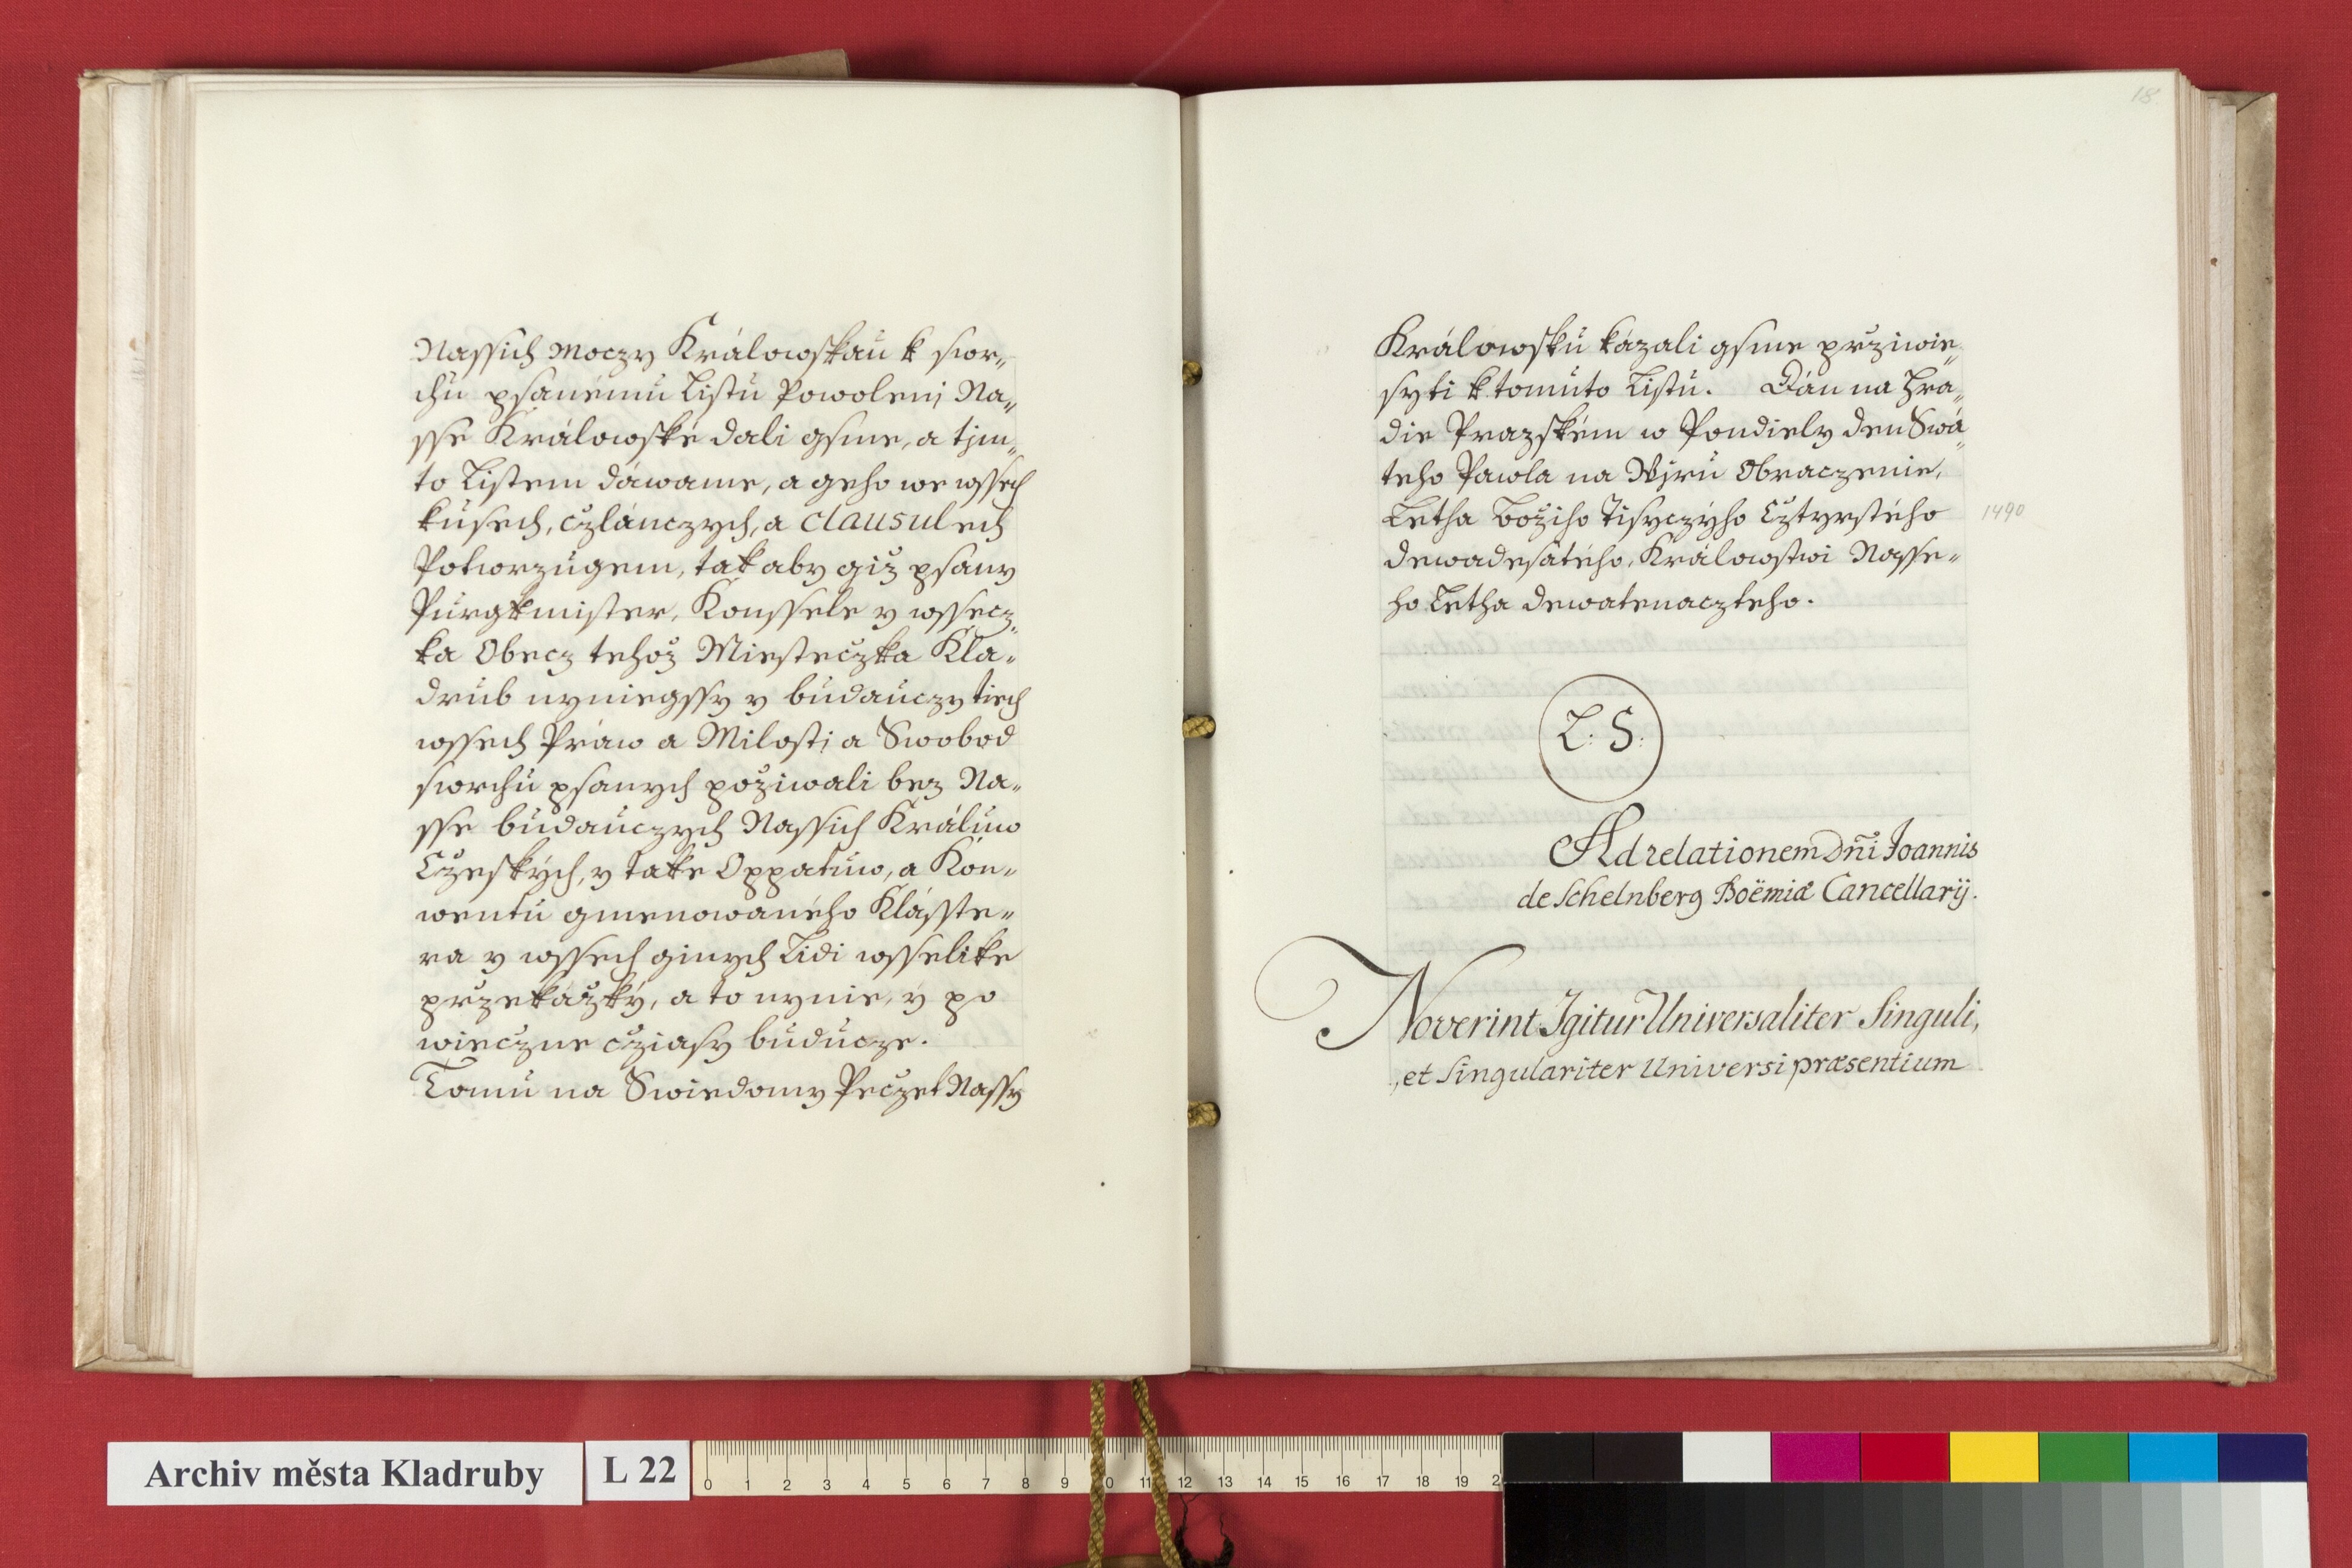 Nassich Moczy Králowskau k swr„
chu psanému Listu Powoleni Na„
sse Králowské dali gsme, a tjm„
to Listem dáwame, a geho we wssech
kusech, Czlánczych, a Clausulech
Potwrzugem, tak aby giz psany
Purgkmister, Konssele y wssecz„
ka Obecz tehoz Miesteczka Kla„
drub nyniegssy y budauczy tiech
wssech Práw a Milosti a Swobod
swrchu psanych poziwali bez Na„
sse budauczych Nassich Králuw
Czeských, y take Oppatuw, a Kon„
wentu gmenowaného Klásste„
ra y wssech ginych Lidi wsselike
przekázký, a to nynie, y po
wieczne cziasy buducze.
Tomu na Swiedomy Peczet Nassy
18
Králowsku kázali gsme prziwie„
syti k tomuto Listu. Dán na Hra„
die Prazském w Pondiely den Swa„
teho Pawla na Wjru Obraczenie,
Letha Božiho Tisyczýho Cztyrstého
dewadesátého, Králowstwi Nasse„
ho Letha dewatenaczteho.
1490
L. S.
Ad relationem Dñi Joannis
de Schelnberg Boëmiæ Cancellarij.
Noverint Igitur Universaliter Singuli,
et Singulariter Universi præsentium
Archiv města Kladruby
L 22
0 1 2 3 4 5 6 7 8 9 0 11 12 13 14 15 16 17 18 19 2